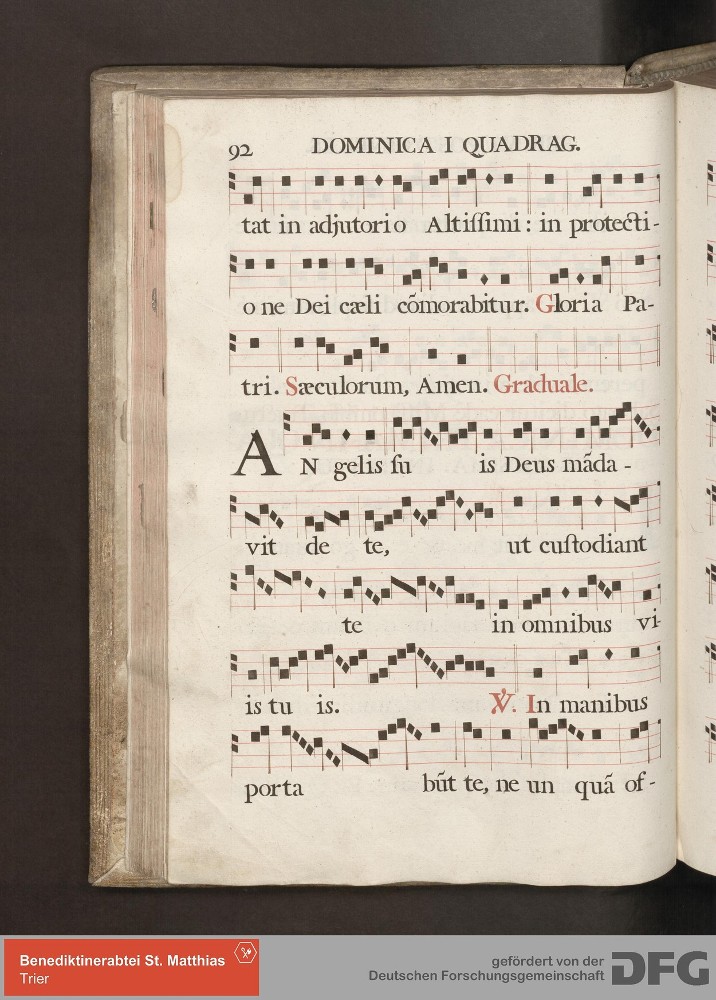 92 DOMINICA I QUADRAG.
tat in adjutorio Altiſſimi : in protecti-
o ne Dei cæli cõmorabitur. Gloria Pa-
tri. Sæculorum, Amen. Graduale.
AN gelis ſu is Deus mãda -
vit de te, ut cuſtodiant
te in omnibus vi-
is tu is. ℣. In manibus
porta bũt te, ne un quã of-
Benediktinerabtei St. Matthias
Trier
gefördert von der
Deutschen Forschungsgemeinschaft
DFG